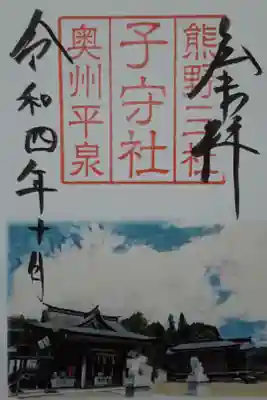 奉拝
熊野三社
子守社
奥州平泉
令和四年十月